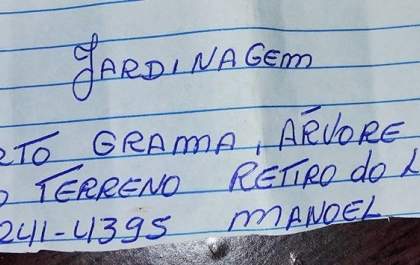 JARDINAGEM
RTO GRAMA, ÁRVORE
TERRENO RETIRO do L
241-4395 MANOEL